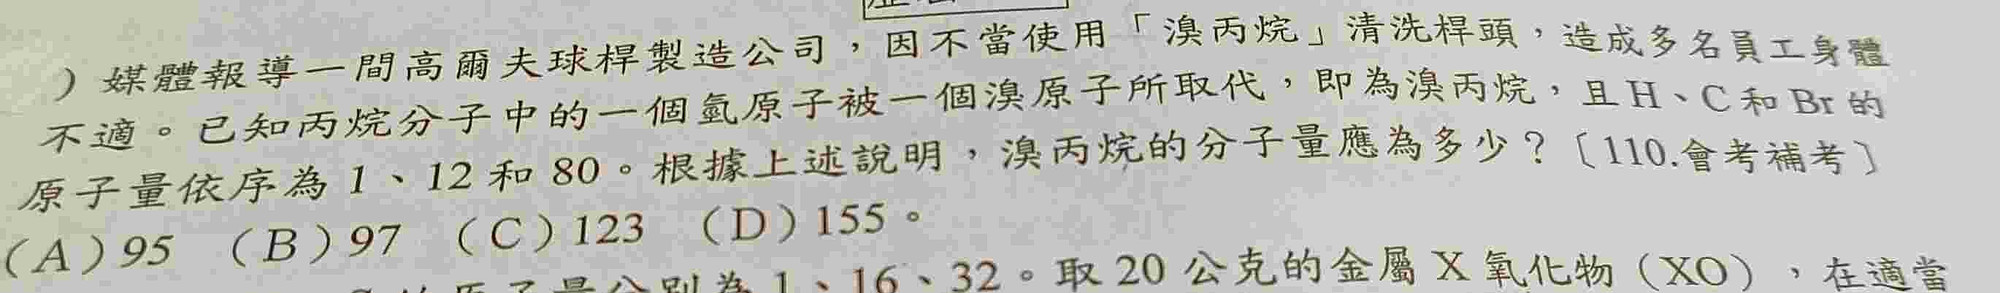 ）媒體報導一間高爾夫球桿製造公司，因不當使用「溴丙烷」清洗桿頭，造成多名員工身體
不適。已知丙烷分子中的一個氫原子被一個溴原子所取代，即為溴丙烷，且H、C和Br的
原子量依序為1、12和80。根據上述說明，溴丙烷的分子量應為多少？〔110.會考補考〕
（A）95 （B）97 （C）123 （D）155。
原子量分別為1、16、32。取20公克的金屬X氧化物（XO），在適當